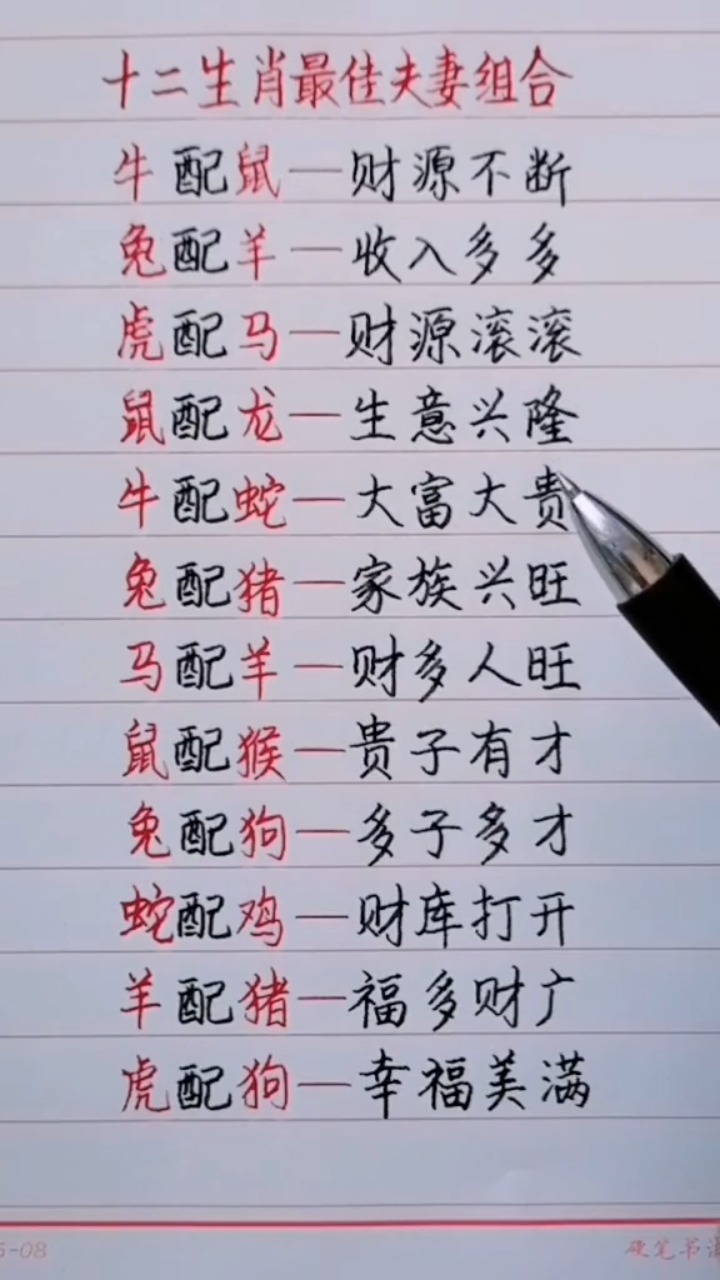 十二生肖最佳夫妻组合
牛配鼠—财源不断
兔配羊—收入多多
虎配马—财源滚滚
鼠配龙—生意兴隆
牛配蛇—大富大贵
兔配猪—家族兴旺
马配羊—财多人旺
鼠配猴—贵子有才
兔配狗—多子多才
蛇配鸡—财库打开
羊配猪—福多财广
虎配狗—幸福美满
-08
硬笔书